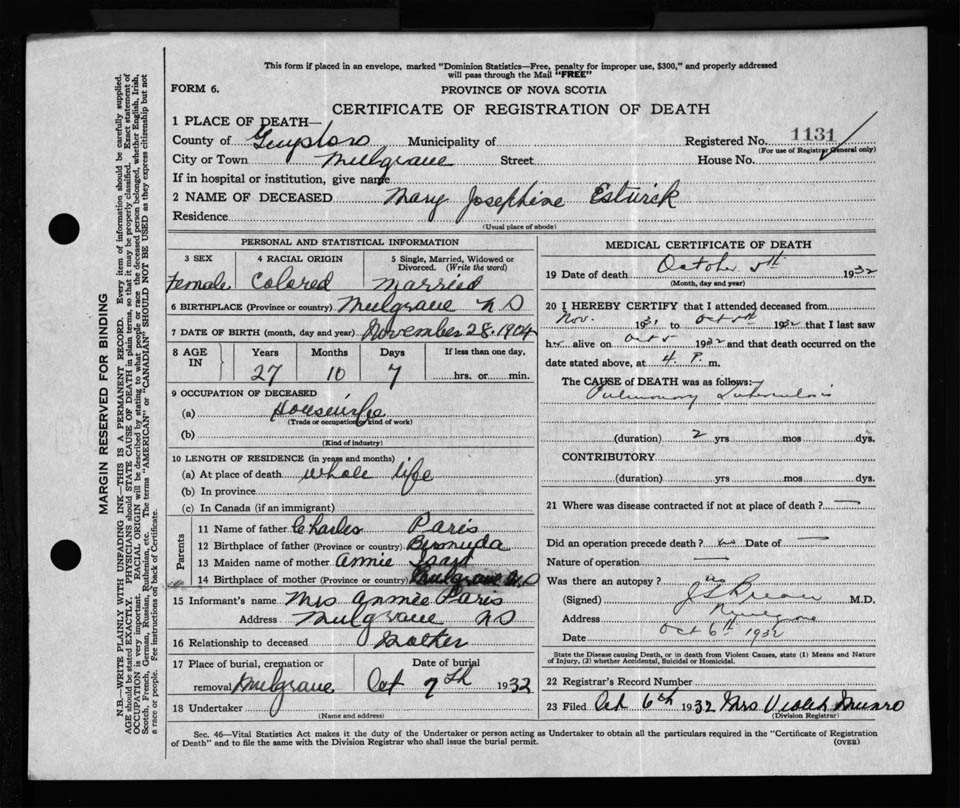 This form if placed in an envelope, marked "Dominion Statistics—Free, penalty for improper use, $300," and properly addressed
will pass through the Mail "FREE"
FORM 6.
PROVINCE OF NOVA SCOTIA
CERTIFICATE OF REGISTRATION OF DEATH
1 PLACE OF DEATH—
County of Guysboro Municipality of Registered No. 1131
(For use of Registrar General only)
City or Town Mulgrave Street House No.
If in hospital or institution, give name
2 NAME OF DECEASED Mary Josephine Esturick
Residence
(Usual place of abode)
PERSONAL AND STATISTICAL INFORMATION
3 SEX 4 RACIAL ORIGIN 5 Single, Married, Widowed or
Divorced. (Write the word)
Female Colored Married
6 BIRTHPLACE (Province or country) Mulgrave N S
7 DATE OF BIRTH (month, day and year) November 28, 1904
8 AGE IN Years Months Days If less than one day,
27 10 7 hrs. or min.
9 OCCUPATION OF DECEASED
(a) Housewife
(Trade or occupation or kind of work)
(b)
(Kind of industry)
10 LENGTH OF RESIDENCE (in years and months)
(a) At place of death whole life
(b) In province
(c) In Canada (if an immigrant)
Parents
11 Name of father Charles Paris
12 Birthplace of father (Province or country) Bermuda
13 Maiden name of mother Annie
14 Birthplace of mother (Province or country) Mulgrave N S
15 Informant's name Mrs Annie Paris
Address Mulgrave N S
16 Relationship to deceased Mother
17 Place of burial, cremation or Date of burial
removal Mulgrave Oct 7th 1932
18 Undertaker
(Name and address)
MEDICAL CERTIFICATE OF DEATH
19 Date of death October 5th 1932
(Month, day and year)
20 I HEREBY CERTIFY that I attended deceased from
Nov. 1931 to Oct 5th 1932 that I last saw
her alive on Oct 5 1932 and that death occurred on the
date stated above, at 4 P. m.
The CAUSE of DEATH was as follows:
Pulmonary Tuberculosis
(duration) 2 yrs mos dys.
CONTRIBUTORY
(duration) yrs mos dys.
21 Where was disease contracted if not at place of death? —
Did an operation precede death? no Date of —
Nature of operation —
Was there an autopsy? no
(Signed) M.D.
Address Mulgrave
Date Oct 6th 1932
State the Disease causing Death, or in death from Violent Causes, state (1) Means and Nature
of Injury, (2) whether Accidental, Suicidal or Homicidal.
22 Registrar's Record Number
23 Filed Oct 6th 1932 Mrs Violet Munro
(Division Registrar)
Sec. 46—Vital Statistics Act makes it the duty of the Undertaker or person acting as Undertaker to obtain all the particulars required in the "Certificate of Registration
of Death" and to file the same with the Division Registrar who shall issue the burial permit.
(OVER)
MARGIN RESERVED FOR BINDING
N.B.—WRITE PLAINLY WITH UNFADING INK—THIS IS A PERMANENT RECORD. Every item of information should be carefully supplied.
AGE should be stated EXACTLY. PHYSICIANS should STATE CAUSE OF DEATH in plain terms, so that it may be properly classified. Exact statement of
OCCUPATION is very important. RACIAL ORIGIN will be described by stating to what people or race the deceased person belonged, whether English, Irish,
Scotch, French, German, Russian, Ruthenian, etc. The terms "AMERICAN" or "CANADIAN" SHOULD NOT BE USED as they express citizenship but not
a race or people. Fee instructions on back of Certificate.